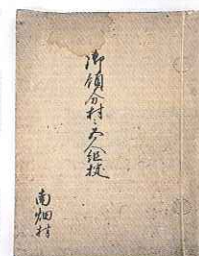 御領分村々五人組掟
南畑村